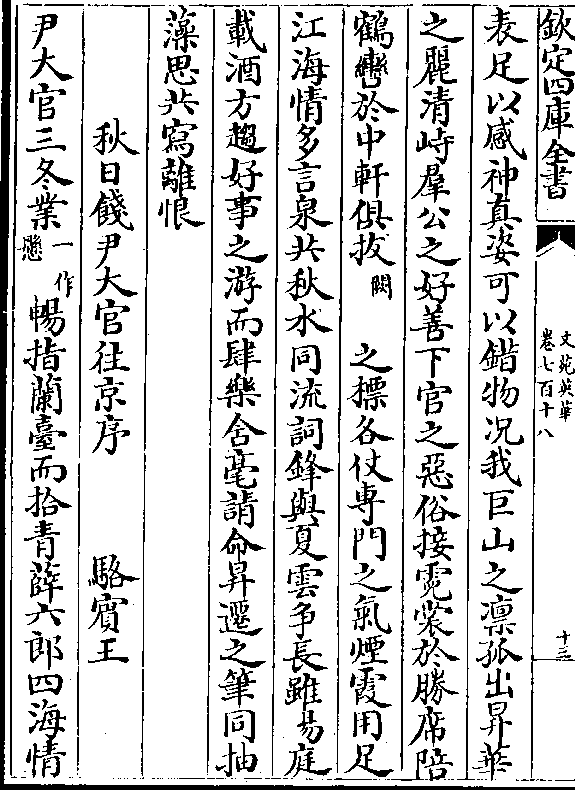 欽定四庫全書
文苑英華
卷七百十八
十三
表足以感神真姿可以錯物况我巨山之凛孤出昇華
之麗清峙羣公之好善下官之惡俗接霓裳於勝席陪
鶴轡於中軒俱抜闕之標各仗専門之氣煙霞用足
江海情多言泉共秋水同流詞鋒與夏雲争長雖易庭
載酒方趨好事之游而肆樂含毫請命昇遷之筆同抽
藻思共寫離恨
秋日餞尹大官往京序 駱賓王
尹大官三冬業一作懋暢指蘭臺而拾青薛六郎四海情